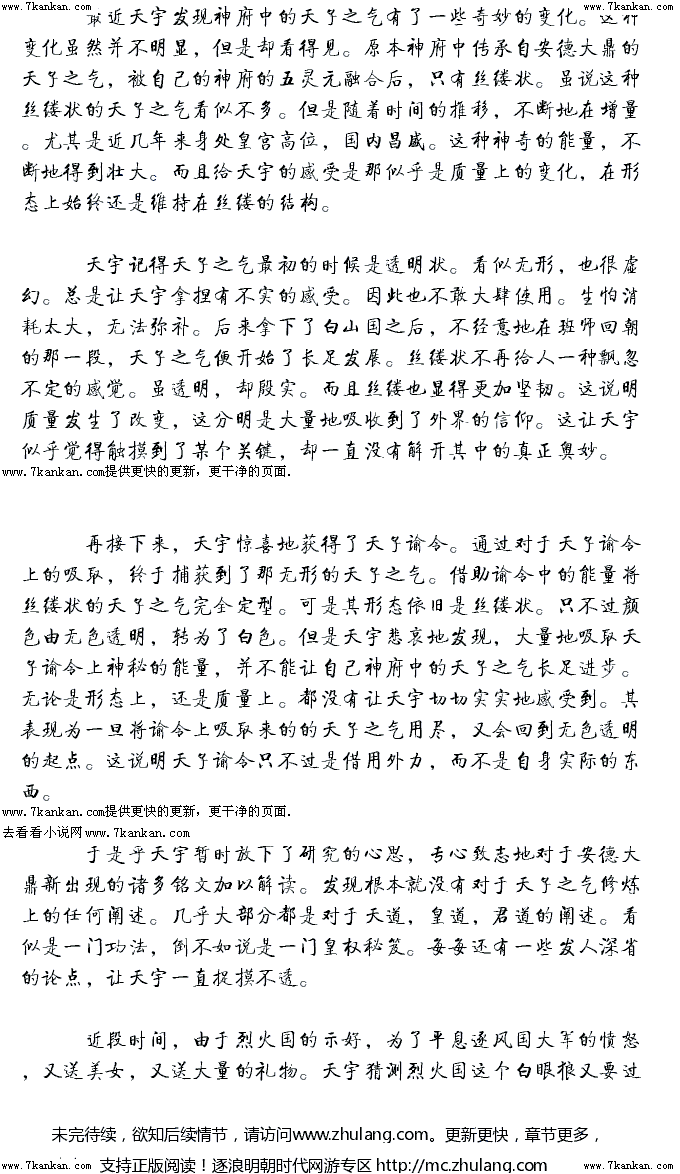 www.7kankan.com www.7kankan.com www.7kankan.com
最近天宇发现神府中的天子之气有了一些奇妙的变化。这种
变化虽然并不明显，但是却看得见。原本神府中传承自安德大鼎的
天子之气，被自己的神府的五灵元融合后，只有丝缕状。虽说这种
丝缕状的天子之气看似不多。但是随着时间的推移，不断地在增量
。尤其是近几年来身处皇宫高位，国内昌盛。这种神奇的能量，不
断地得到壮大。而且给天宇的感受是那似乎是质量上的变化，在形
态上始终还是维持在丝缕的结构。
天宇记得天子之气最初的时候是透明状。看似无形，也很虚
幻。总是让天宇拿捏有不实的感受。因此也不敢大肆使用。生怕消
耗太大，无法弥补。后来拿下了白山国之后，不经意地在班师回朝
的那一段，天子之气便开始了长足发展。丝缕状不再给人一种飘忽
不定的感觉。虽透明，却殷实。而且丝缕也显得更加坚韧。这说明
质量发生了改变，这分明是大量地吸收到了外界的信仰。这让天宇
似乎觉得触摸到了某个关键，却一直没有解开其中的真正奥妙。
www.7kankan.com提供更快的更新，更干净的页面.
再接下来，天宇惊喜地获得了天子谕令。通过对于天子谕令
上的吸取，终于捕获到了那无形的天子之气。借助谕令中的能量将
丝缕状的天子之气完全定型。可是其形态依旧是丝缕状。只不过颜
色由无色透明，转为了白色。但是天宇悲哀地发现，大量地吸取天
子谕令上神秘的能量，并不能让自己神府中的天子之气长足进步。
无论是形态上，还是质量上。都没有让天宇切切实实地感受到。其
表现为一旦将谕令上吸取来的的天子之气用尽，又会回到无色透明
的起点。这说明天子谕令只不过是借用外力，而不是自身实际的东
西。
www.7kankan.com提供更快的更新，更干净的页面.
去看看小说网www.7kankan.com
于是乎天宇暂时放下了研究的心思，专心致志地对于安德大
鼎新出现的诸多铭文加以解读。发现根本就没有对于天子之气修炼
上的任何阐述。几乎大部分都是对于天道，皇道，君道的阐述。看
似是一门功法，倒不如说是一门皇权秘笈。每每还有一些发人深省
的论点，让天宇一直捉摸不透。
近段时间，由于烈火国的示好，为了平息逐风国大军的愤怒
，又送美女，又送大量的礼物。天宇猜测烈火国这个白眼狼又要过
未完待续，欲知后续情节，请访问www.zhulang.com。更新更快，章节更多，
支持正版阅读！逐浪明朝时代网游专区 http://mc.zhulang.com
www.7kankan.com www.7kankan.com